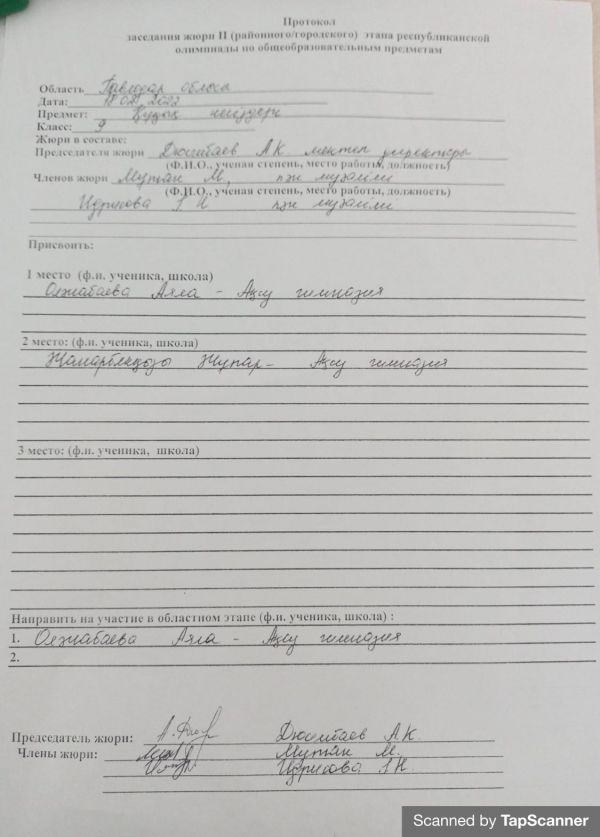 Протокол
заседания жюри II (районного/городского) этапа республиканской
олимпиады по общеобразовательным предметам
Область Павлодар облысы
Дата: 18.02.2022
Предмет: Құқық негіздері
Класс: 9
Жюри в составе:
Председателя жюри Дюсибаев А К мектеп директоры
(Ф.И.О., ученая степень, место работы, должность)
Членов жюри Мутан М, пән мұғалімі
(Ф.И.О., ученая степень, место работы, должность)
Идрисова пән мұғалімі
Присвоить:
1 место (ф.и. ученика, школа)
Олжабаева Аяла - Ақсу гимназия
2 место: (ф.и. ученика, школа)
Жанарбекқызы Жупар - Ақсу гимназия
3 место: (ф.и. ученика, школа)
Направить на участие в областном этапе (ф.и. ученика, школа) :
1. Олжабаева Аяла - Ақсу гимназия
2.
Председатель жюри: Дюсибаев А.К.
Члены жюри: Мутан М.
Идрисова
Scanned by TapScanner